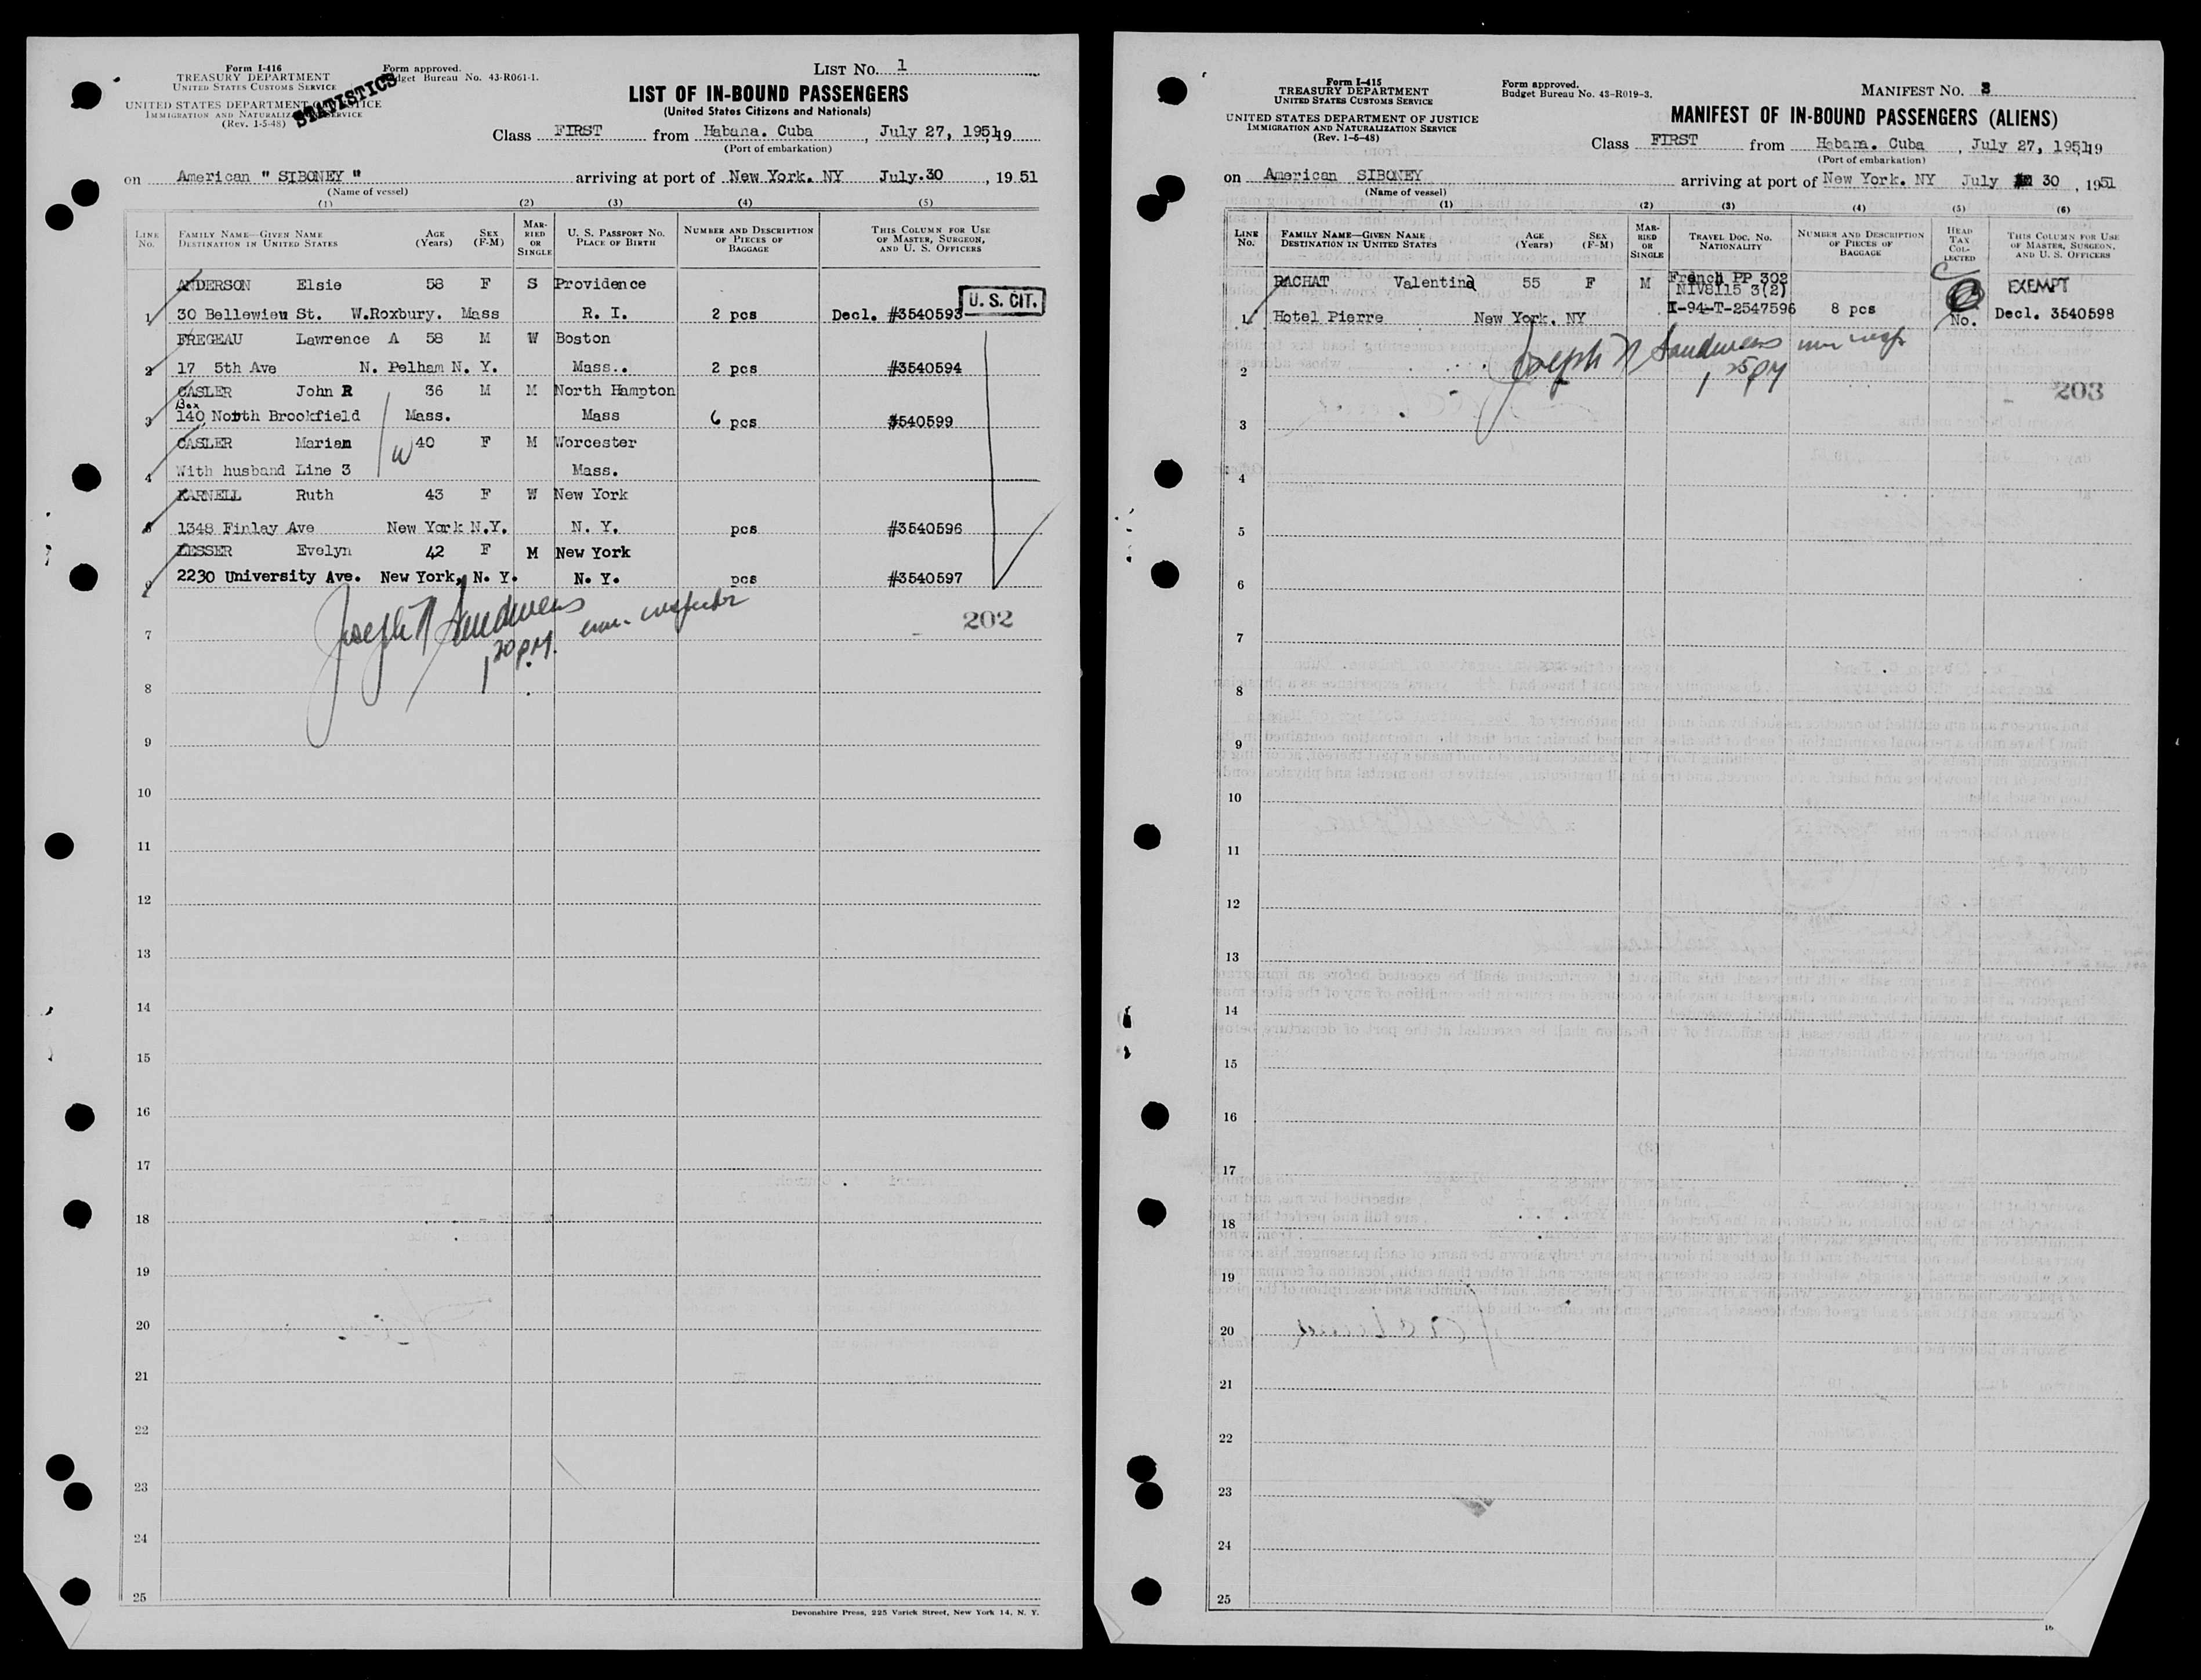 Form I-416
TREASURY DEPARTMENT
UNITED STATES CUSTOMS SERVICE
UNITED STATES DEPARTMENT OF JUSTICE
IMMIGRATION AND NATURALIZATION SERVICE
(Rev. 1-5-48)
STATISTICS
Form approved.
Budget Bureau No. 43-R061-1.
LIST No. 1
LIST OF IN-BOUND PASSENGERS
(United States Citizens and Nationals)
Class FIRST from Habana. Cuba, July 27, 1951, 19
(Port of embarkation)
on American " SIBONEY " arriving at port of New York. NY July.30, 1951
(Name of vessel)
(1) (2) (3) (4) (5)
LINE No. FAMILY NAME—GIVEN NAME DESTINATION IN UNITED STATES AGE (Years) SEX (F-M) MARRIED OR SINGLE U. S. PASSPORT NO. PLACE OF BIRTH NUMBER AND DESCRIPTION OF PIECES OF BAGGAGE THIS COLUMN FOR USE OF MASTER, SURGEON, AND U. S. OFFICERS
ANDERSON Elsie 58 F S Providence
U. S. CIT.
1 30 Bellewieu St. W.Roxbury. Mass R. I. 2 pcs Decl. #3540593
FREGEAU Lawrence A 58 M W Boston
2 17 5th Ave N. Pelham N. Y. Mass.. 2 pcs #3540594
CASLER John R 36 M M North Hampton
Box
3 140 North Brookfield Mass. Mass 6 pcs #540599
CASLER Mariam W 40 F M Worcester
4 With husband Line 3 Mass.
KARNELL Ruth 43 F W New York
5 1348 Finlay Ave New York N.Y. N. Y. pcs #3540596
LESSER Evelyn 42 F M New York
6 2230 University Ave. New York, N. Y. N. Y. pcs #3540597
imm. inspector
1 20 P.M.
202
7
8
9
10
11
12
13
14
15
16
17
18
19
20
21
22
23
24
25
Devonshire Press, 225 Varick Street, New York 14, N. Y.
Form I-415
TREASURY DEPARTMENT
UNITED STATES CUSTOMS SERVICE
UNITED STATES DEPARTMENT OF JUSTICE
IMMIGRATION AND NATURALIZATION SERVICE
(Rev. 1-6-48)
Form approved.
Budget Bureau No. 43-R019-3.
MANIFEST No.
MANIFEST OF IN-BOUND PASSENGERS (ALIENS)
Class FIRST from Habana. Cuba, July 27, 1951, 19
(Port of embarkation)
on American SIBONEY arriving at port of New York. NY July 30, 1951
(Name of vessel)
(1) (2) (3) (4) (5) (6)
LINE No. FAMILY NAME—GIVEN NAME DESTINATION IN UNITED STATES AGE (Years) SEX (F-M) MARRIED OR SINGLE TRAVEL DOC. NO. NATIONALITY NUMBER AND DESCRIPTION OF PIECES OF BAGGAGE HEAD TAX COLLECTED THIS COLUMN FOR USE OF MASTER, SURGEON, AND U. S. OFFICERS
PACHAT Valentina 55 F M French PP 302
NIV8115 3(2) EXEMPT
1 Hotel Pierre New York. NY I-94-T-2547596 8 pcs No. Decl. 3540598
1 25 PM
203
2
3
4
5
6
7
8
9
10
11
12
13
14
15
16
17
18
19
20
21
22
23
24
25
16